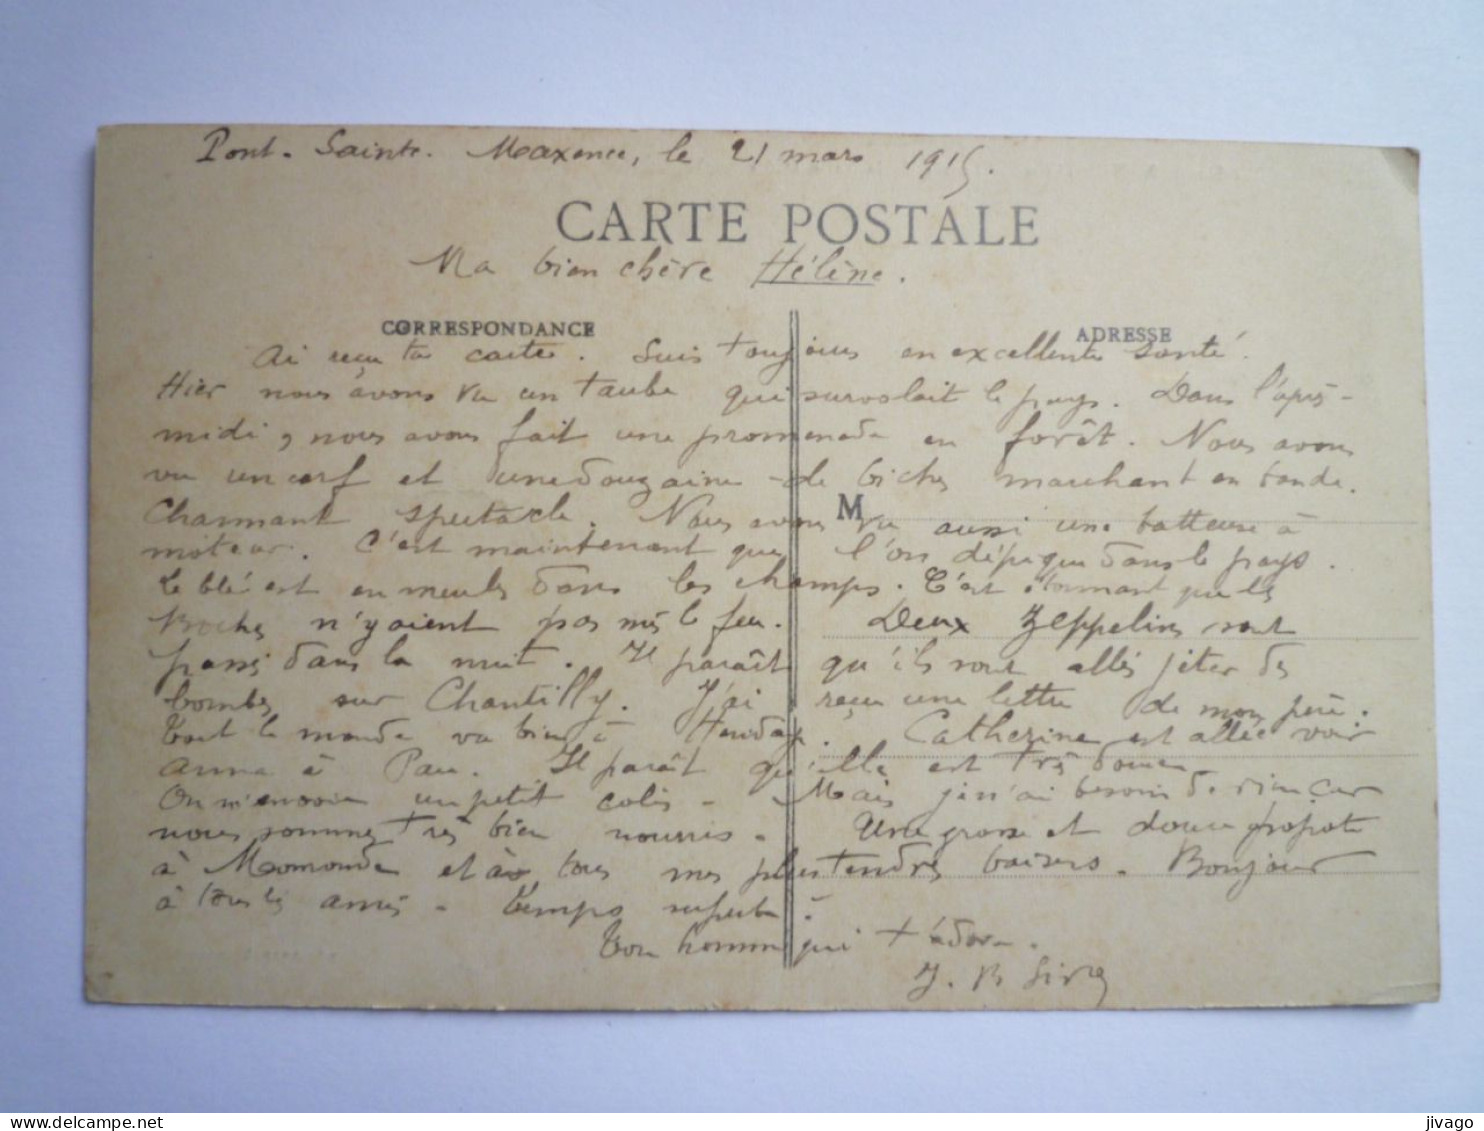 Pont-Sainte-Maxence, le 21 mars 1915.
CARTE POSTALE
Ma bien chère Hélène.
CORRESPONDANCE
ADRESSE
Ai reçu ta carte. Suis toujours en excellente santé.
Hier nous avons vu un taube qui survolait le pays. Dans l'après-
midi, nous avons fait une promenade en forêt. Nous avons
vu un cerf et une douzaine de biches marchant en bande.
Charmant spectacle. Nous avons vu aussi une batteuse à
M
moteur. C'est maintenant que l'on dépique dans le pays.
Le blé est en meules dans les champs. C'est étonnant que les
Boches n'y aient pas mis le feu. Deux Zeppelins sont
passés dans la nuit. Il paraît qu'ils sont allés jeter des
bombes sur Chantilly. J'ai reçu une lettre de mon père.
Tout le monde va bien à Catherine est allée voir
Anna à Pau. Il paraît qu'elle est très
On m'envoie un petit colis. Mais je n'ai besoin de rien car
nous sommes très bien nourris. Une grosse et douce
à et à tous mes plus tendres baisers. Bonjour
à tous les amis. Temps superbe.
Ton homme qui t'adore.
J. B
jivago